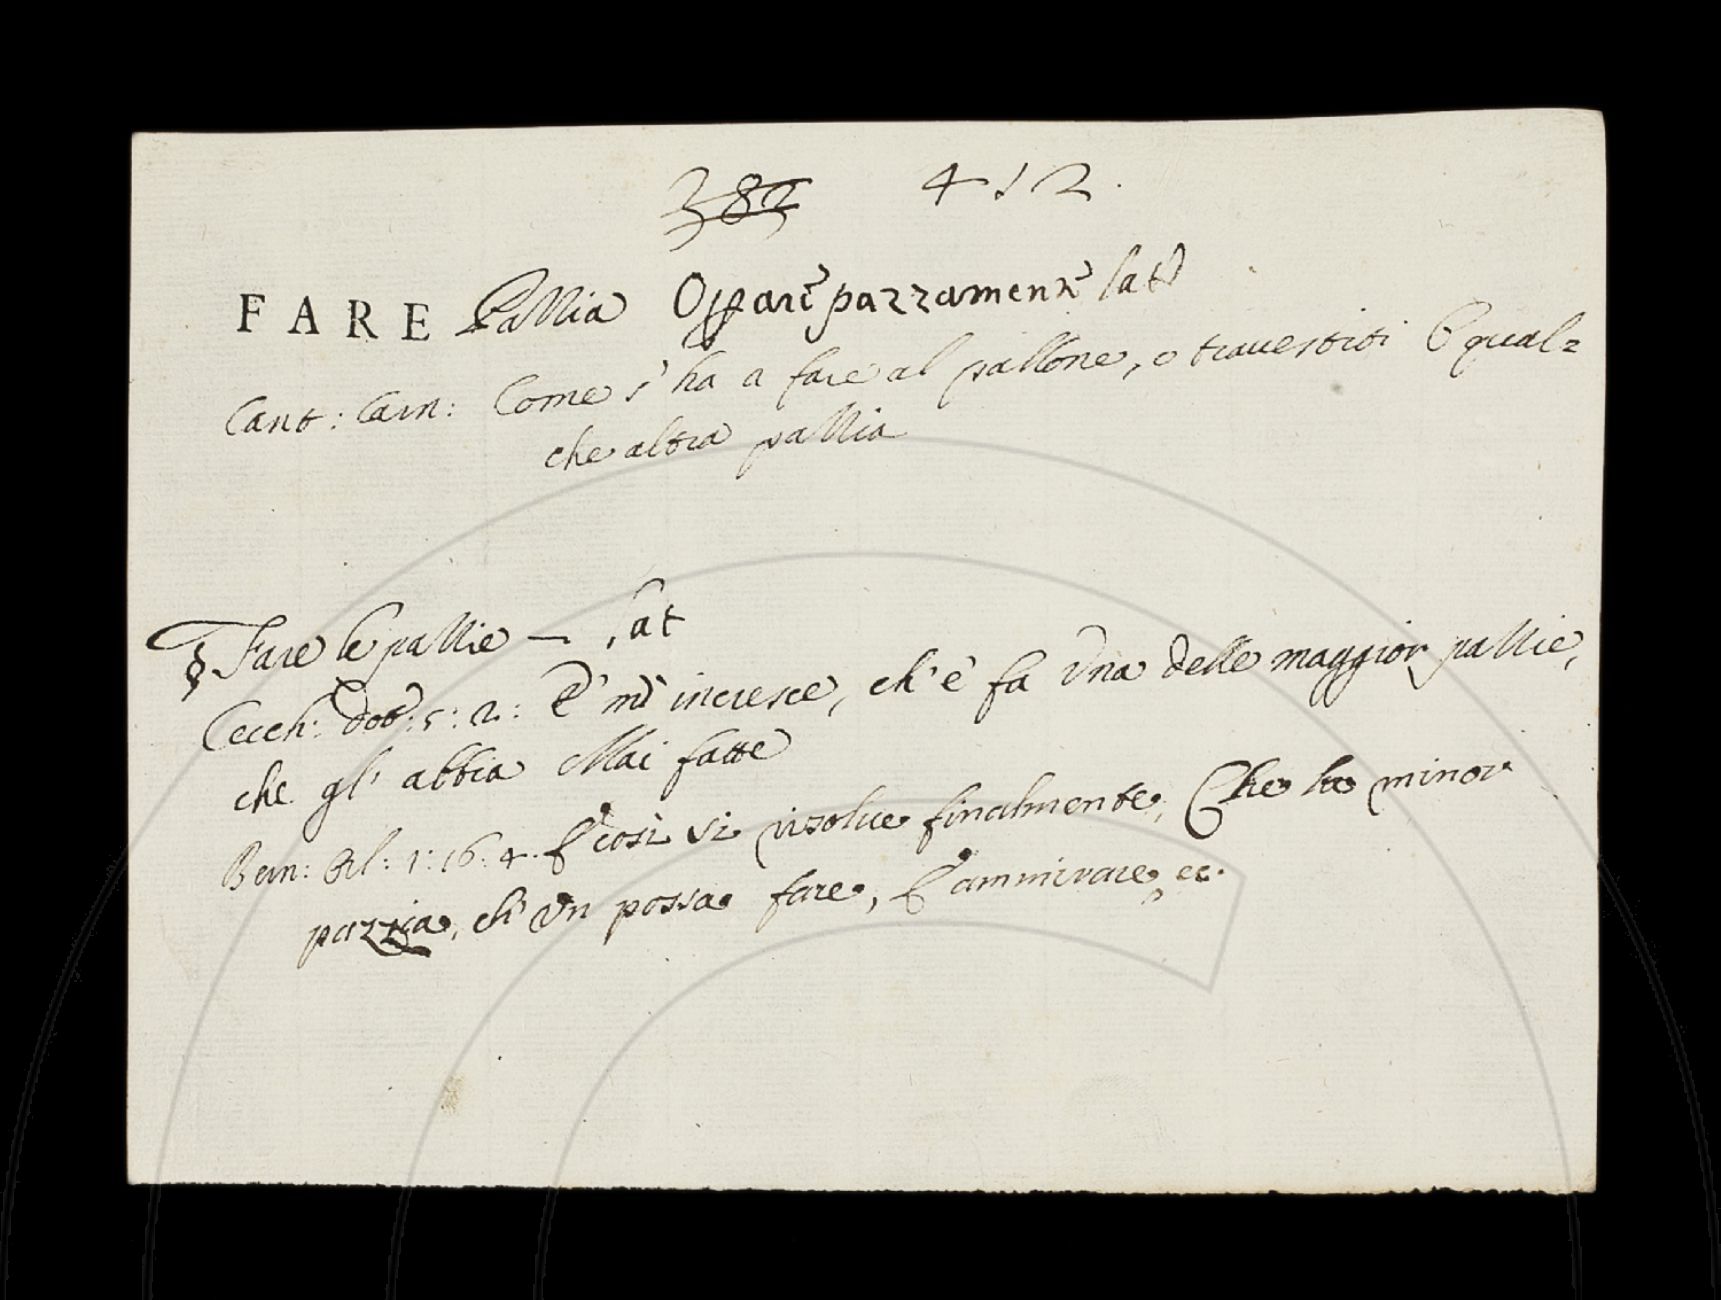 382 412.
FARE Pazzia Operare pazzamente lat
Cant: Carn: Come s' ha a fare al pallone, o travestiti O qual=
che altra pazzia
§ Fare le pazzie — lat
Cecch: Dot: 5: 2: E' m' incresce, ch' e' fa Una delle maggior pazzie,
che gl' abbia Mai fatte
Bern: Orl: 1: 16: 4. E così si risolve finalmente, Che la minor
pazzia, ch' Un possa fare, E' ammirare, ec.